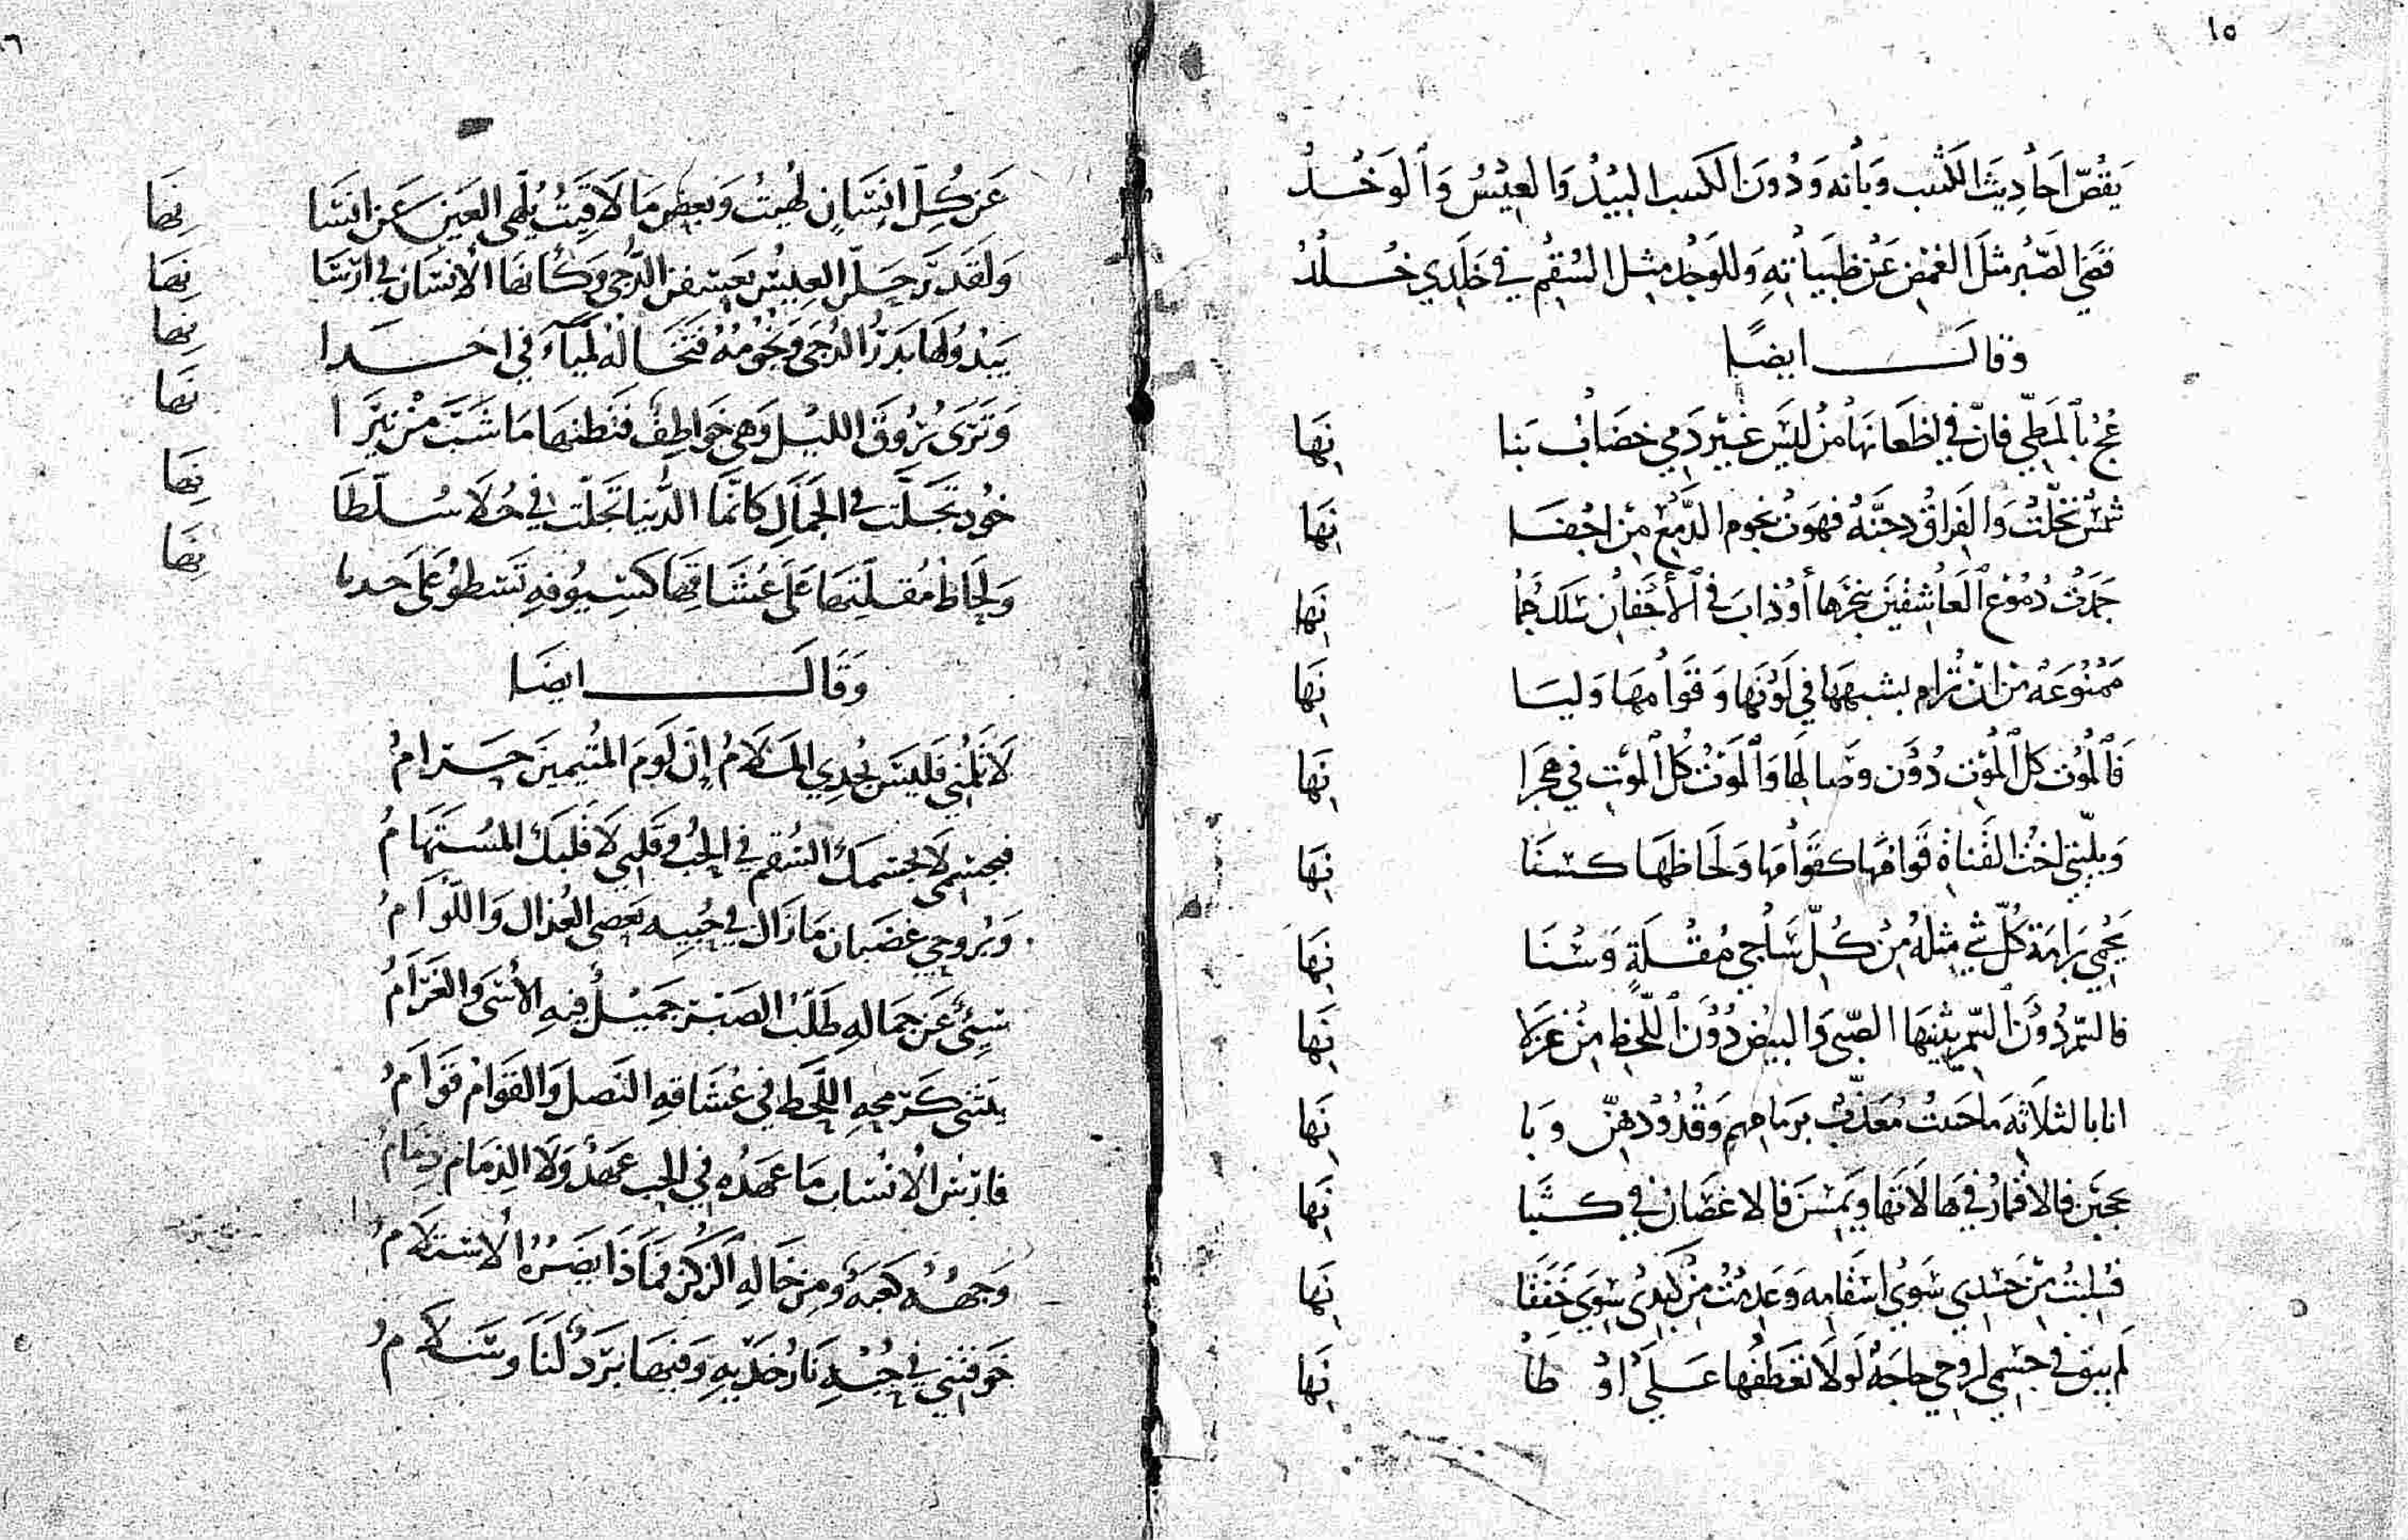 ١٥
يَقُصّ اَحَادِيثَ الكثب وَبَانِهِ وَدُونَ الكثب البِيْدُ وَالعِيْسُ وَالوَخْدُ
قضى الصَّبْرُ مثل الغمْضِ عَنْ ظَبَيَاتِهِ وَللوَجْدِ مِثل السُّقمِ في خَلَدِي خُلْدُ
وقال ايضًا
عُجْ بالمَطِيِّ فَانّ في اظعَانهَا مَنْ ليسَ غَيْرَ دَمِي خِضَابُ بَنا نِهَا
شمْسٌ تَجَلَّتْ وَالفِرَاقُ دجنَّهُ فهَوَتْ نجوم الدَّمْعِ مِنْ اجْفَا نِهَا
جَمَدَتْ دُمُوْعُ العَاشِقِيْنَ بنَحْرِهَا أوْ ذابَ في الأجْفانِ سلك جُمَا نِهَا
مَمْنُوعَهٌ مِنْ انْ تُرَام بشبهِهَا في لَوْنِهَا وَقَوَامِهَا وَليَا نِهَا
فَالمَوْتُ كل المَوْتِ دُوْن وِصَالِهَا وَالمَوْتُ كُلّ المَوْتِ في هِجْرَا نِهَا
وَبليّتي اخْتُ القَنَاةِ قَوَامُهَا كقَوَامِهَا وَلحَاظهَا كسنَا نِهَا
يَحْمِي برَامَة كُلّ شيْ مِثْلهُ مِنْ كُلّ سَاجِي مُقْلَةٍ وَسْنَا نِهَا
فالسّمْر دُوْنَ السّمْر يثنيهَا الصِّبى وَالبيْض دُوْنَ اللّحْظِ مِنْ غزْلا نِهَا
انا بالثلاثة مَا حَيِيْتُ مُعَذّبٌ برِمَاحِهم وَقُدُودِهِنّ وَبَا نِهَا
فالاقمَارُ في هَالاتهَا وَيَمِسْنَ فالاغصَان في كُثْبَا نِهَا
فسُلِبْتُ مِنْ جَسَدِي سِوَى اسْقَامِه وَعَدِمْتُ مِنْ كَبِدِي سِوَى خَفَقَا نِهَا
لم يبق في جسْمِي لروحي حاجَةٌ لَولا تعَطّفهَا عَلَى اوْطَا نِهَا
عَن كُلّ انسَانٍ لهيتُ وَبعض مَا لاقيتُ يُلْهِى العَيْنَ عَن انسَا نِهَا
وَلقَدْ تَرَحّلَتِ العِيسُ يَعسِفْنَ الدُّجى وَكأنهَا الأَشطَان في اشْطَا نِهَا
يَبْدُو لهَا بَدْرُ الدُّجَى وَنجُومُهُ فتَخَالُهُ لميَاءَ في اخْدَا نِهَا
وَتَرَى بُرُوقَ الليْل وَهي خَوَاطِفٌ فتَظنهَا مَا شَبَّ مِنْ نِيرَا نِهَا
خَوْد تجَلّت في الجمَالِ كأنّمَا الدُّنيا تَجَلّت في حُلا سُلْطَا نِهَا
وَلِحَاظُ مُقلَتِهَا عَلَى عُشّاقهَا كسُيُوفِهِ تَسْطُو عَلَى حدثا نِهَا
وَقَالَ ايضَا
لاَ تَلُمْنِي فَلَيسَ يُجْدِي المَلاَمُ إِنّ لَومَ المُتَيّمينَ حَرَامُ
فبجسْمِي لاَ بجسْمِكَ السُّقم في الحِبّ وَقلبي لاَ قلبكَ المُسْتَهَامُ
وَبرُوحِي غضبَان مَا زَال في حُبّيهِ يَعصى العُذَّال وَاللُّوَّامُ
سِيْئَ عَن جمَاله طَلَبُ الصَّبْر جَمِيْلٌ فِيْهِ الأَسَى وَالغَرَامُ
يَنْثَنِي كَرُمْحِهِ اللّحظ في عُشّاقِهِ النَصل وَالقَوَامُ قَوَامُ
فارسُ الانسَاب مَا عَهْدُهُ في الحِبّ عَهْدٌ وَلاَ الذِّمَام ذِمَامُ
وَجهُهُ كعبَهٌ وَمِنْ خَالِهِ الرُّكْنُ فمَاذَا يَضُرُّهُ الاسْتلاَمُ
خَوّفَتْنِي في حُبّهِ نَارُ خَدّيهِ وَفيهَا بَرْدٌ لَنَا وَسَلاَمُ